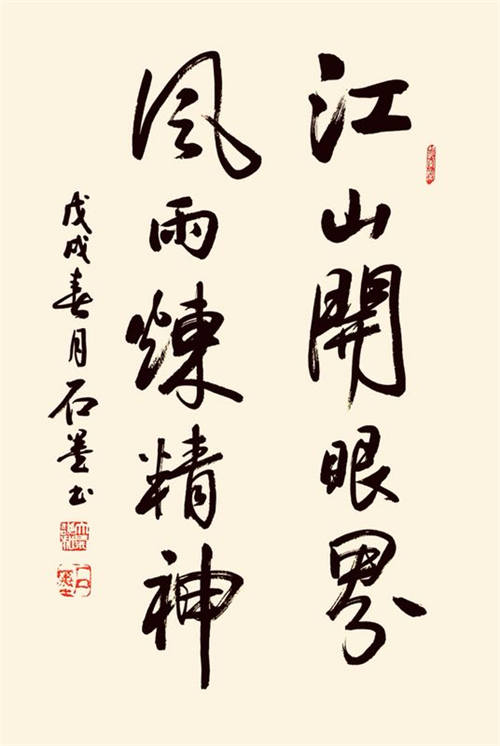 江山開眼界
風雨煉精神
戊戌春月石墨书